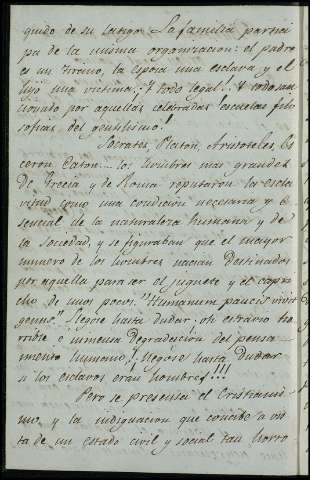 guido de su latigo. La familia partici
pa de la misma organizacion: el padre
es un tirano, la esposa una esclava y el
hijo una victima. ¡Y todo legal! ¡Y todo san
cionado por aquellas celebradas escuelas filo
sofias del gentilismo!
Socrates, Platon, Aristoteles, Ci
ceron, Caton... los hombres mas grandes
de Grecia y de Roma reputaron la escla
vitud como una condicion necesaria y e
sencial de la naturaleza humana y de
la Sociedad, y se figuraban que el mayor
numero de los hombres nacian destinados
por aquella para ser el juguete y el capri
cho de unos pocos. "Humanum paucis vivit
genus." Llegóse hasta dudar ¡oh estravio ho
rrible é inmensa degradacion del pensa
miento humano! ¡llegóse hasta dudar
si los esclavos eran hombres!!!
Pero se presenta el Cristianis
mo, y la indignacion que concibe á vis
ta de un estado civil y social tan horro